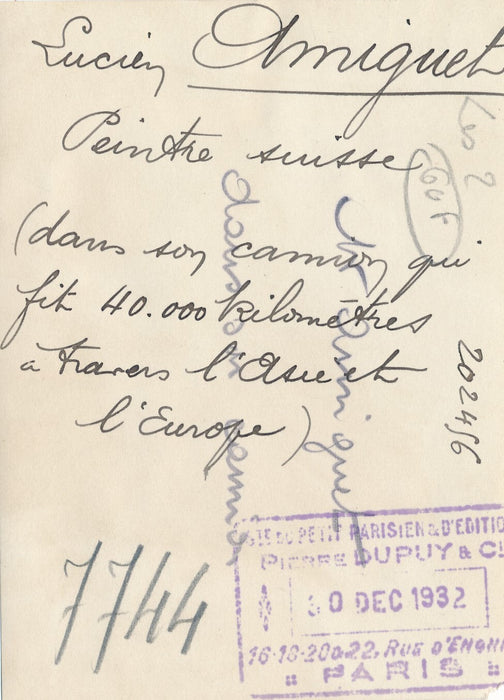 Lucien Amiguet
Peintre suisse
(dans son camion qui
fit 40.000 kilomètres
à travers l'Asie et
l'Europe)
Mr Amiguet
dans son camion
202456
7744
STE DU PETIT PARISIEN & D'EDITIO
PIERRE DUPUY & CI
30 DEC 1932
16-18-20 & 22, RUE D'ENGHI
PARIS